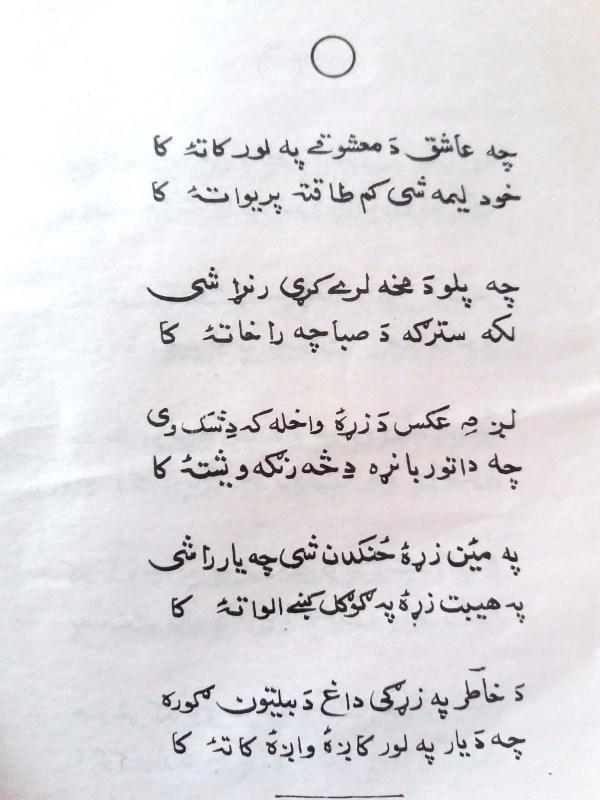 چه عاشق دَ معشوقے په لور کاتهٔ کا
خود لیمه شی کم طاقته پریواتهٔ کا
چه پلو دَ مخه لرے کړی رنړا شی
لکه سترګه دَ صبا چه را خاتهٔ کا
لږ مِ عکس دَ زړهٔ واخله که دِ شک وی
چه دا تور بانړه دِ څه رنګه ویشتهٔ کا
په مئین زړهٔ ځنکدن شی چه یار راشی
په هیبت زړهٔ په ګوګل کښے الواتهٔ کا
دَ خاطر په زړګی داغ دَ بیلتون ګوره
چه دَ یار په لور کاږهٔ واږهٔ کاتهٔ کا